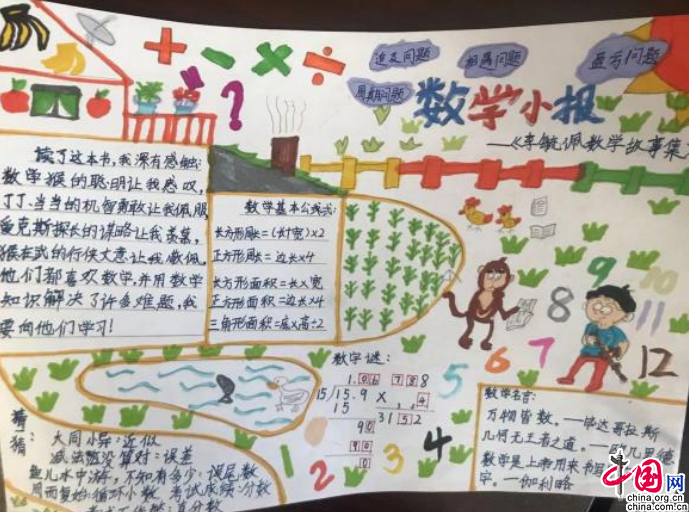 追及问题
相遇问题
盈亏问题
周期问题
数学小报
——《李毓佩数学故事集
读了这本书,我深有感触:
数学猴的聪明让我感叹,
丁丁、当当的机智勇敢让我佩服
爱克斯探长的谋略让我羡慕,
猴在武的行侠大意让我撒佩。
他们都喜欢数学,并用数学
知识解决了许多难题,我
要向他们学习!
数学基本公式:
长方形周长=(长+宽)×2
正方形周长=边长×4
长方形面积=长×宽
正方形面积=边长×4
三角形面积=底×高÷2
数字谜:
1.06
15/15.9
15
90
90
0
788
× 4
3152
1 2 3 4 5 6 7 8 9 10 11 12
猜
猜
大同小异:近似
减法题没算对:误差
鱼儿水中游,不知有多少:误尾数
周而复始:循环小数 考试成绩:分数
真分数
数学名言:
万物皆数。——毕达哥拉斯
几何无王者之道。——欧几里德
数学是上帝用来书
字。——伽利略
中国网
china.org.cn
china.com.cn